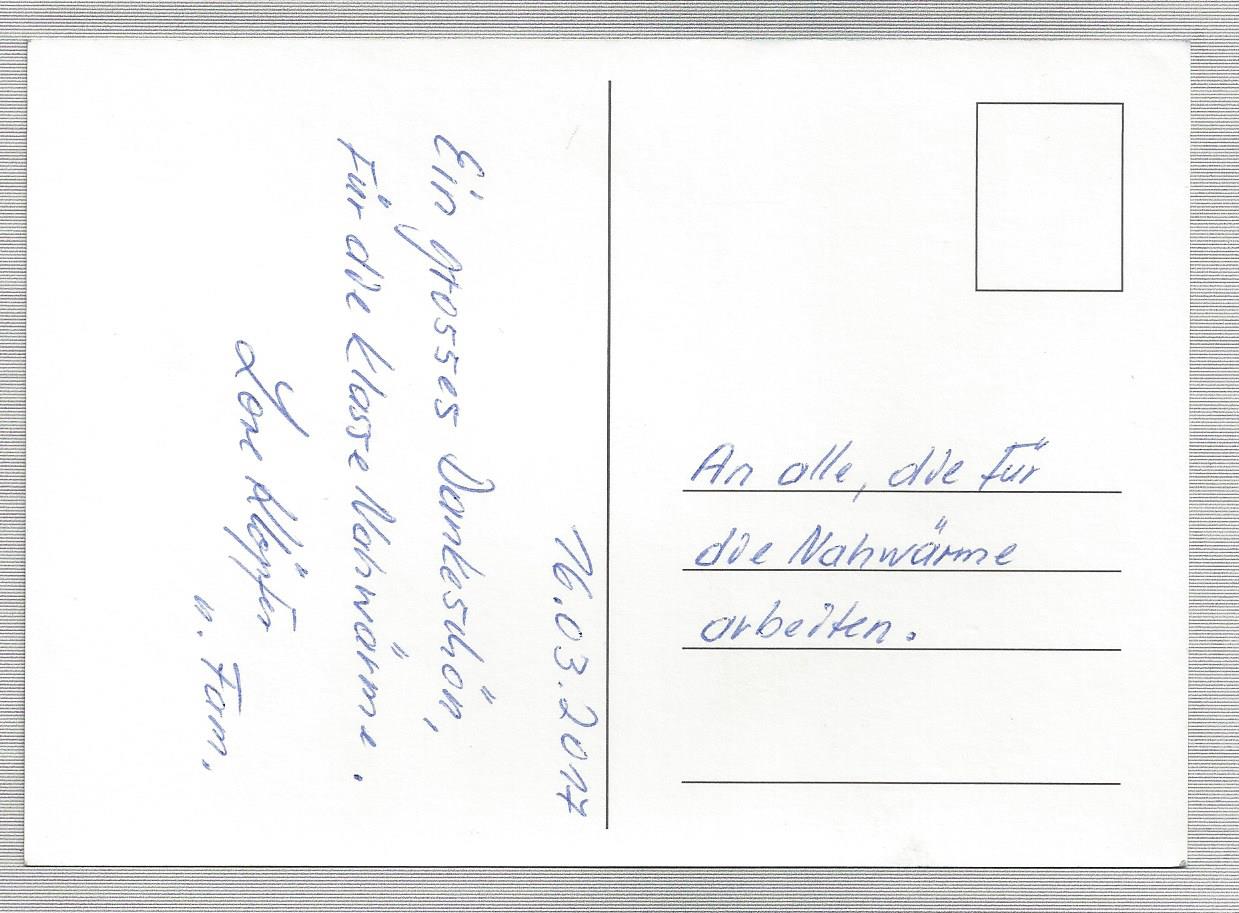 16.03.2017
Ein grosses Dankeschön,
Für die klasse Nahwärme.
Lore Klöpfer
u. Fam.
An alle, die Für
die Nahwärme
arbeiten.